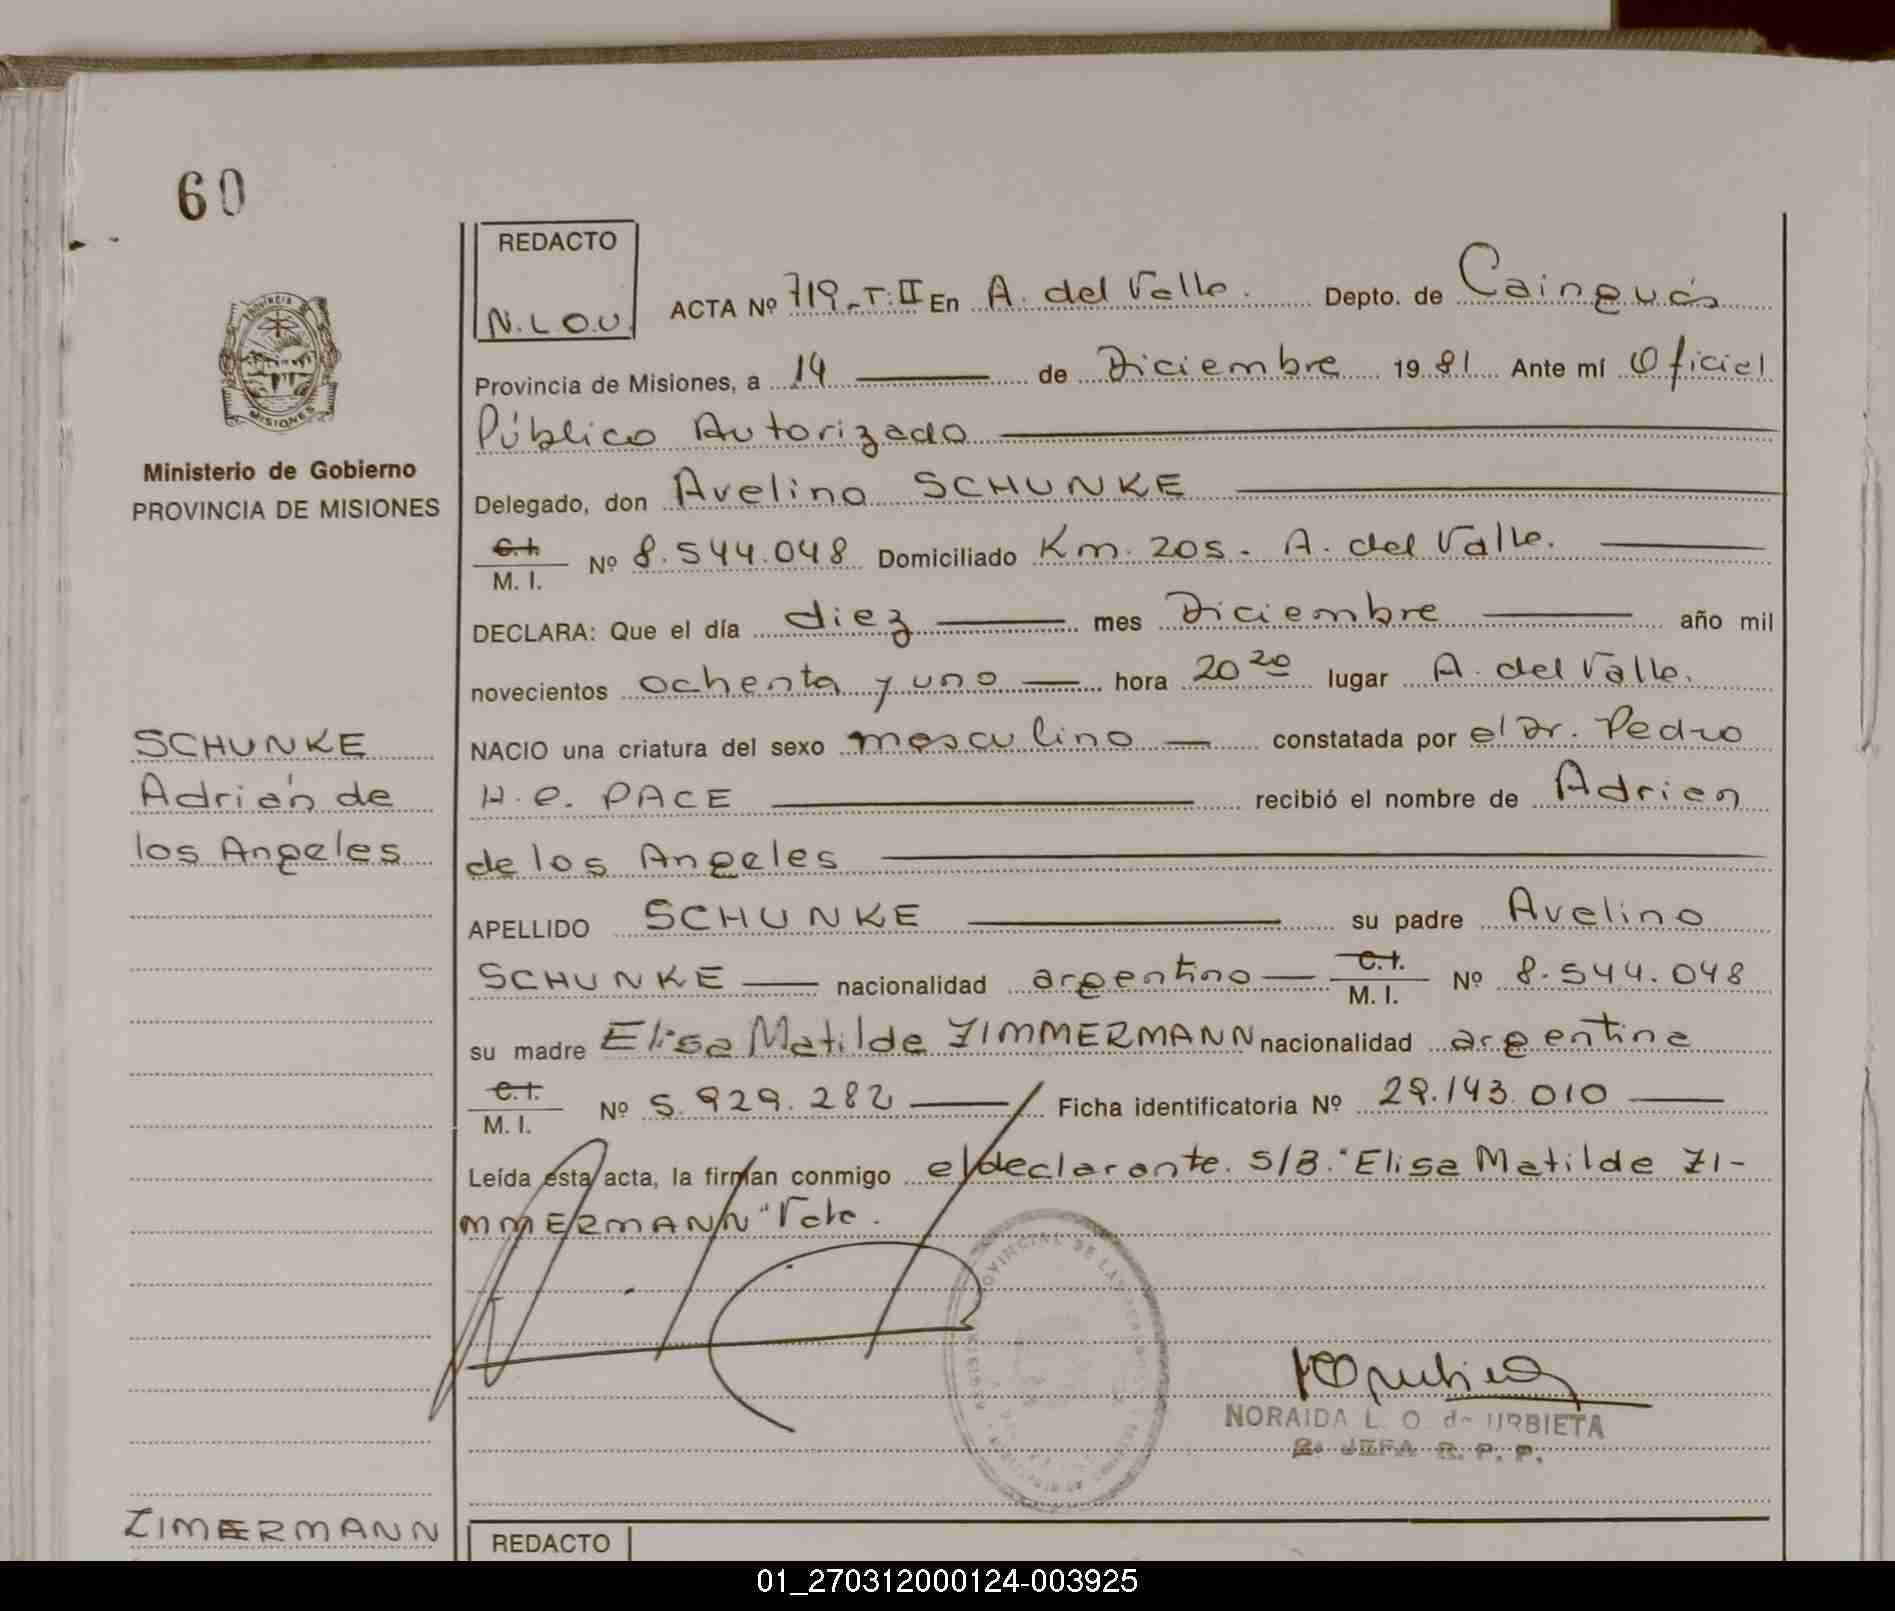 60
REDACTO
N.L.O.U.
ACTA Nº 719-T.II En A. del Valle. Depto. de Cainguás
Provincia de Misiones, a 14 de Diciembre 1981 Ante mí Oficial
Público Autorizado
Delegado, don Avelino SCHUNKE
C.I. M.I. Nº 8.544.048 Domiciliado Km. 205 - A. del Valle.
DECLARA: Que el día diez mes Diciembre año mil
novecientos ochenta y uno hora 20 20 lugar A. del Valle.
NACIO una criatura del sexo masculino constatada por el Dr. Pedro
H. C. PACE recibió el nombre de Adrian
de los Angeles
APELLIDO SCHUNKE su padre Avelino
SCHUNKE nacionalidad argentino C.I. M.I. Nº 8.544.048
su madre Elisa Matilde ZIMMERMANN nacionalidad argentina
C.I. M.I. Nº 5.929.282 Ficha identificatoria Nº 29.143.010
Leída ésta acta, la firman conmigo el declarante. S/B. "Elisa Matilde ZI-
MMERMANN" Vale.
PROVINCIA
MISIONES
Ministerio de Gobierno
PROVINCIA DE MISIONES
SCHUNKE
Adrián de
los Angeles
PROVINCIAL DE LAS
NORAIDA L. O. de URBIETA
2ª JEFA R. P. P.
ZIMERMANN
REDACTO
01_270312000124-003925